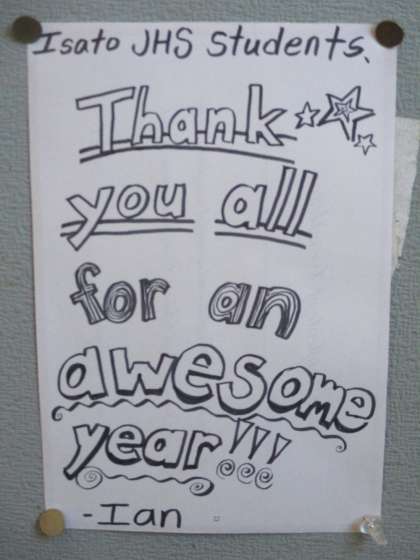 Isato JHS Students.
Thank
you all
for an
awesome
year!!!
-Ian